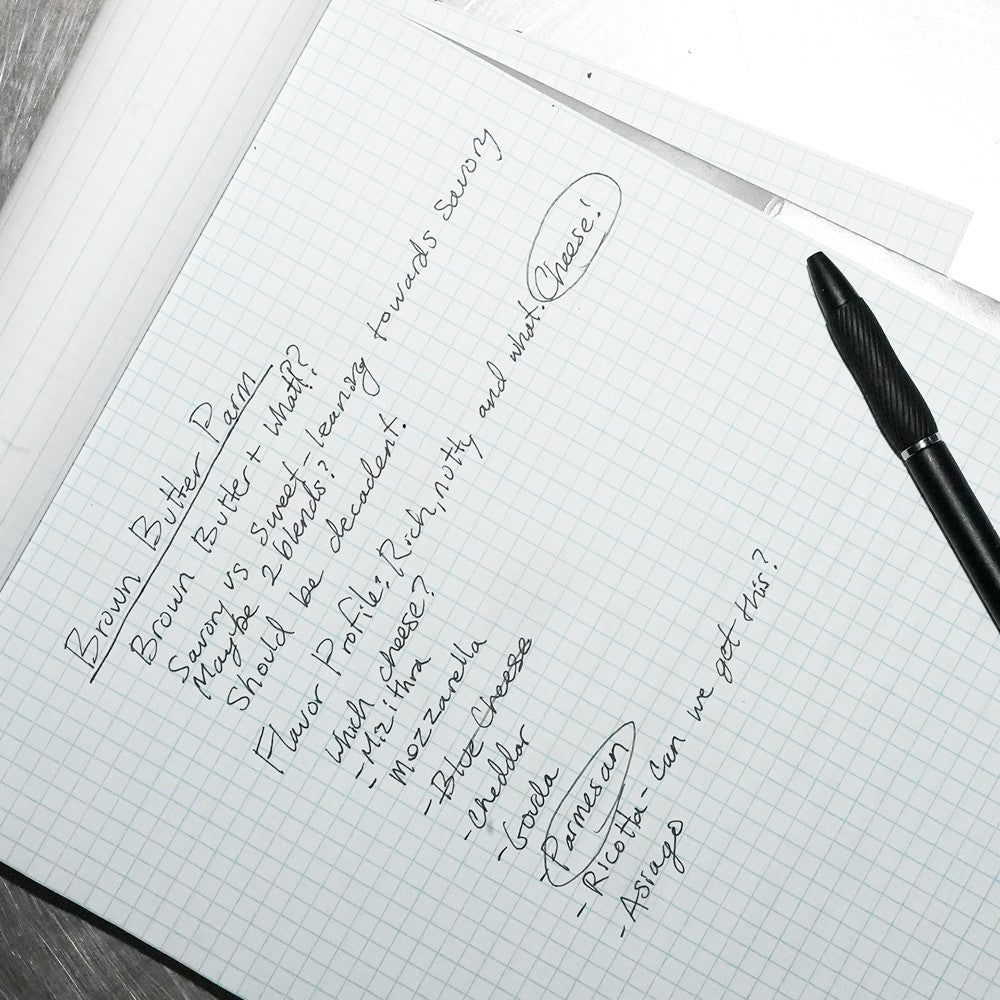 Brown Butter Parm
Brown Butter + What??
Savory vs Sweet - leaning towards savory
Maybe 2 blends?
Should be decadent.
Flavor Profile: Rich, nutty and what. Cheese!
which cheese?
- Mizithra
Mozzarella
- Blue Cheese
- Cheddar
- Gouda
- Parmesan
- Ricotta - Can we get this?
- Asiago